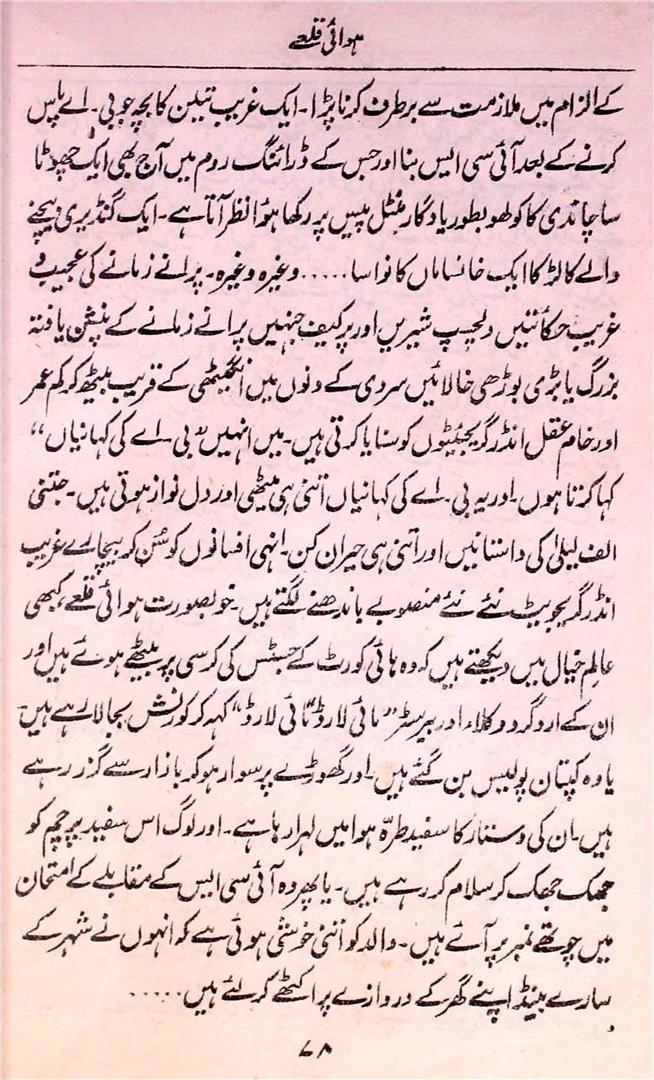 ہوائی قلعے
کے الزام میں ملازمت سے برطرف کرنا پڑا۔ ایک غریب تیلن کا بچہ جو بی۔ اے پاس
کرنے کے بعد آئی سی ایس بنا اور جس کے ڈرائنگ روم میں آج بھی ایک چھوٹا
سا چاندی کا کولھو بطور یادگار مینٹل پیس پر رکھا ہوا نظر آتا ہے۔ ایک گنڈیری بیچنے
والے کا لڑکا ایک خانساماں کا نواسا..... وغیرہ وغیرہ۔ پرانے زمانے کی عجیب و
غریب حکائتیں دلچسپ شیریں اور پرکیف جنہیں پرانے زمانے کے پنشن یافتہ
بزرگ یا بڑی بوڑھی خالائیں سردی کے دنوں میں انگیٹھی کے قریب بیٹھ کر کم عمر
اور خام عقل انڈر گریجیٹوں کو سنایا کرتی ہیں۔ میں انہیں "بی۔ اے کی کہانیاں"
کہا کرتا ہوں۔ اور یہ بی۔ اے کی کہانیاں اتنی ہی میٹھی اور دل نواز ہوتی ہیں۔ جتنی
الف لیلیٰ کی داستانیں اور اتنی ہی حیران کن۔ انہی افسانوں کو سُن کر بیچارے غریب
انڈر گریجویٹ نئے نئے منصوبے باندھنے لگتے ہیں۔ خوبصورت ہوائی قلعے، کبھی
عالمِ خیال میں دیکھتے ہیں کہ وہ ہائی کورٹ کے جسٹس کی کرسی پر بیٹھے ہوئے ہیں اور
ان کے اردگرد وکلاء اور بیرسٹر "مائی لارڈ" "مائی لارڈ" کہہ کر کورنش بجا لا رہے ہیں۔
یا وہ کپتان پولیس بن گئے ہیں۔ اور گھوڑے پر سوار ہو کر بازار سے گزر رہے
ہیں۔ ان کی دستار کا سفید طرّہ ہوا میں لہرا رہا ہے۔ اور لوگ اس سفید پرچم کو
جھک جھک کر سلام کر رہے ہیں۔ یا پھر وہ آئی سی ایس کے مقابلے کے امتحان
میں چوتھے نمبر پر آئے ہیں۔ والد کو اتنی خوشی ہوئی ہے کہ انہوں نے شہر کے
سارے بینڈ اپنے گھر کے دروازے پر اکٹھے کر لئے ہیں.....
۶۸